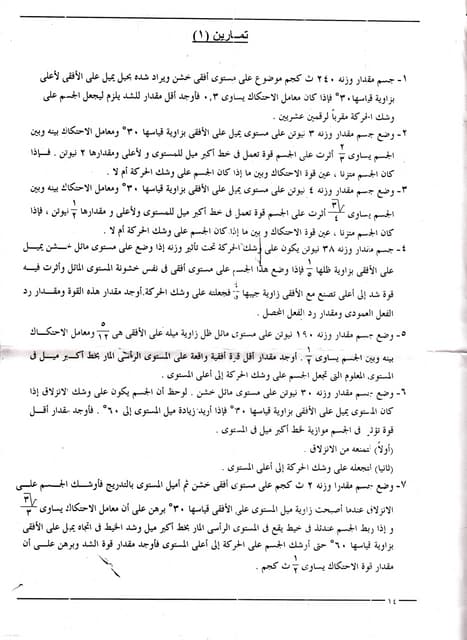 تمـارين (١)
١- جسم مقدار وزنه ٢٤٠ ث كجم موضوع على مستوى أفقى خشن ويراد شده بحبل يميل على الأفقى لأعلى
بزاوية قياسها ٣٠° فإذا كان معامل الاحتكاك يساوى ٠,٣ فأوجد أقل مقدار للشد يلزم ليجعل الجسم على
وشك الحركة مقرباً لرقمين عشريين .
٢- وضع جسم مقدار وزنه ٣ نيوتن على مستوى يميل على الأفقى بزاوية قياسها ٣٠° ومعامل الاحتكاك بينه وبين
الجسم يساوى ٢/٣ أثرت على الجسم قوة تعمل فى خط أكبر ميل للمستوى و لأعلى ومقدارها ٢ نيوتن . فـإذا
كان الجسم متزنا ، عين قوة الاحتكاك وبين ما إذا كان الجسم على وشك الحركة أم لا .
٣- وضع جسم مقدار وزنه ٤ نيوتن على مستوى يميل على الأفقى بزاوية قياسها ٣٠° ومعامل الاحتكاك بينه وبين
الجسم يساوى √٣/٤ أثرت على الجسم قوة تعمل فى خط أكبر ميل للمستوى ولأعلى و مقدارها ١/٢ نيوتن ، فإذا
كان الجسم متزن ، عين قوة الاحتكاك و بين ما إذا كان الجسم على وشك الحركة أم لا .
٤- جسم مقدار وزنه ٣٨ نيوتن يكون على وشك الحركة تحت تأثير وزنه إذا وضع على مستوى مائل خشـن يميـل
على الأفقى بزاوية ظلها فإذا وضع هذا الجسم على مستوى أفقى فى نفس خشونة المستوى المائل وأثرت فيـه
قوة شد إلى أعلى تصنع مع الأفقى زاوية جيبها فجعلته على وشك الحركة.أوجد مقدار هذه القوة ومقـدار رد
الفعل العمودى ومقدار رد الفعل المحصل .
٥- وضع جسم مقدار وزنه ١٩٠ نيوتن على مستوى مائل ظل زاوية ميله على الأفقى هى ٥/١٢ ومعامل الاحتكـاك
بينه وبين الجسم يساوى . أوجد مقدار أقل قوة أفقية واقعة على المستوى الرأسى المار بخط أكـبر ميـل فى
المستوى المعلوم التى تجعل الجسم على وشك الحركة إلى أعلى المستوى .
٦- وضع جسم مقدار وزنه ٣٠ نيوتن على مستوى مائل خشن . لوحظ أن الجسم يكون على وشك الانزلاق إذا
كان المستوى يميل على الأفقى بزاوية قياسها ٣٠° فإذا أريد زيادة ميل المستوى إلى ٦٠° . فأوجد مقـدار أقـل
قوة تؤثر فى الجسم موازية لخط أكبر ميل فى المستوى .
(أولاً) لتمنعه من الانزلاق .
(ثانيا) لتجعله على وشك الحركة إلى أعلى المستوى .
٧- وضع جسم مقدرا وزنه ٢ ث كجم على مستوى أفقى خشن ثم أميل المستوى بالتدريج فأوشك الجسـم علـى
الانزلاق عندما أصبحت زاوية ميل المستوى على الأفقى قياسها ٣٠° برهن على أن معامل الاحتكاك يساوى √٣/٣
و إذا ربط الجسم عندئذ فى خيط يقع فى المستوى الرأسى المار بخط أكبر ميل وشد الخيط فى اتجاه يميل على الأفقى
بزاوية قياسها ٦٠° حتى أوشك الجسم على الحركة إلى أعلى المستوى فأوجد مقدار قوة الشد وبرهن علـى أن
مقدار قوة الاحتكاك يساوى ث كجم .
١٤